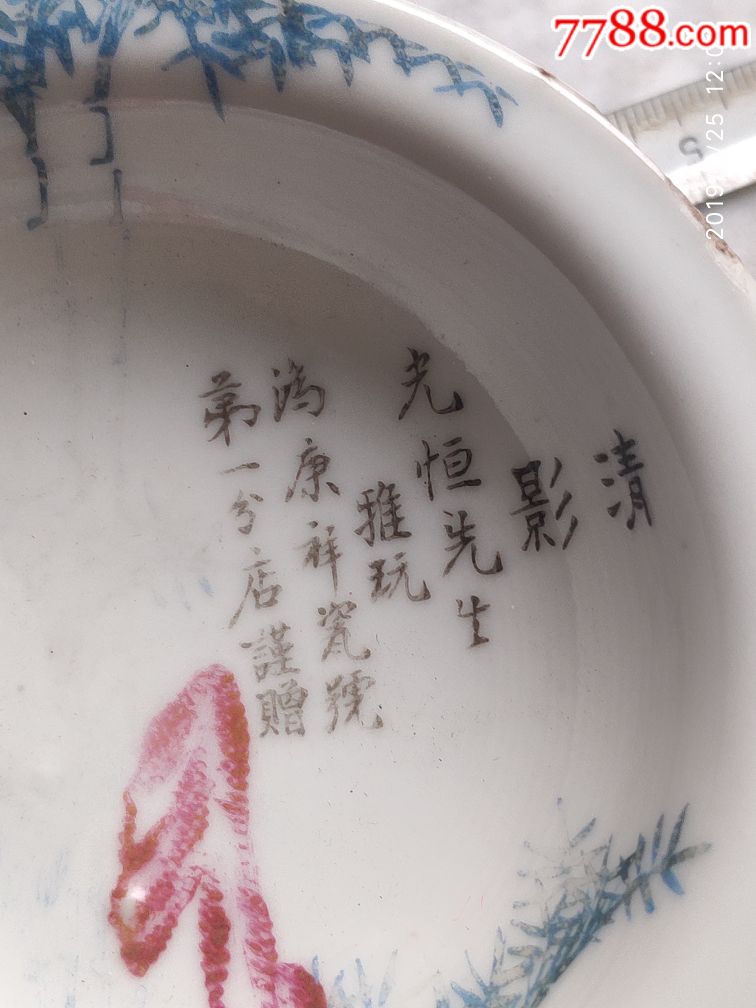 7788.com
清
影
光恒先生
雅玩
鴻康祥瓷號
第一分店謹贈
5